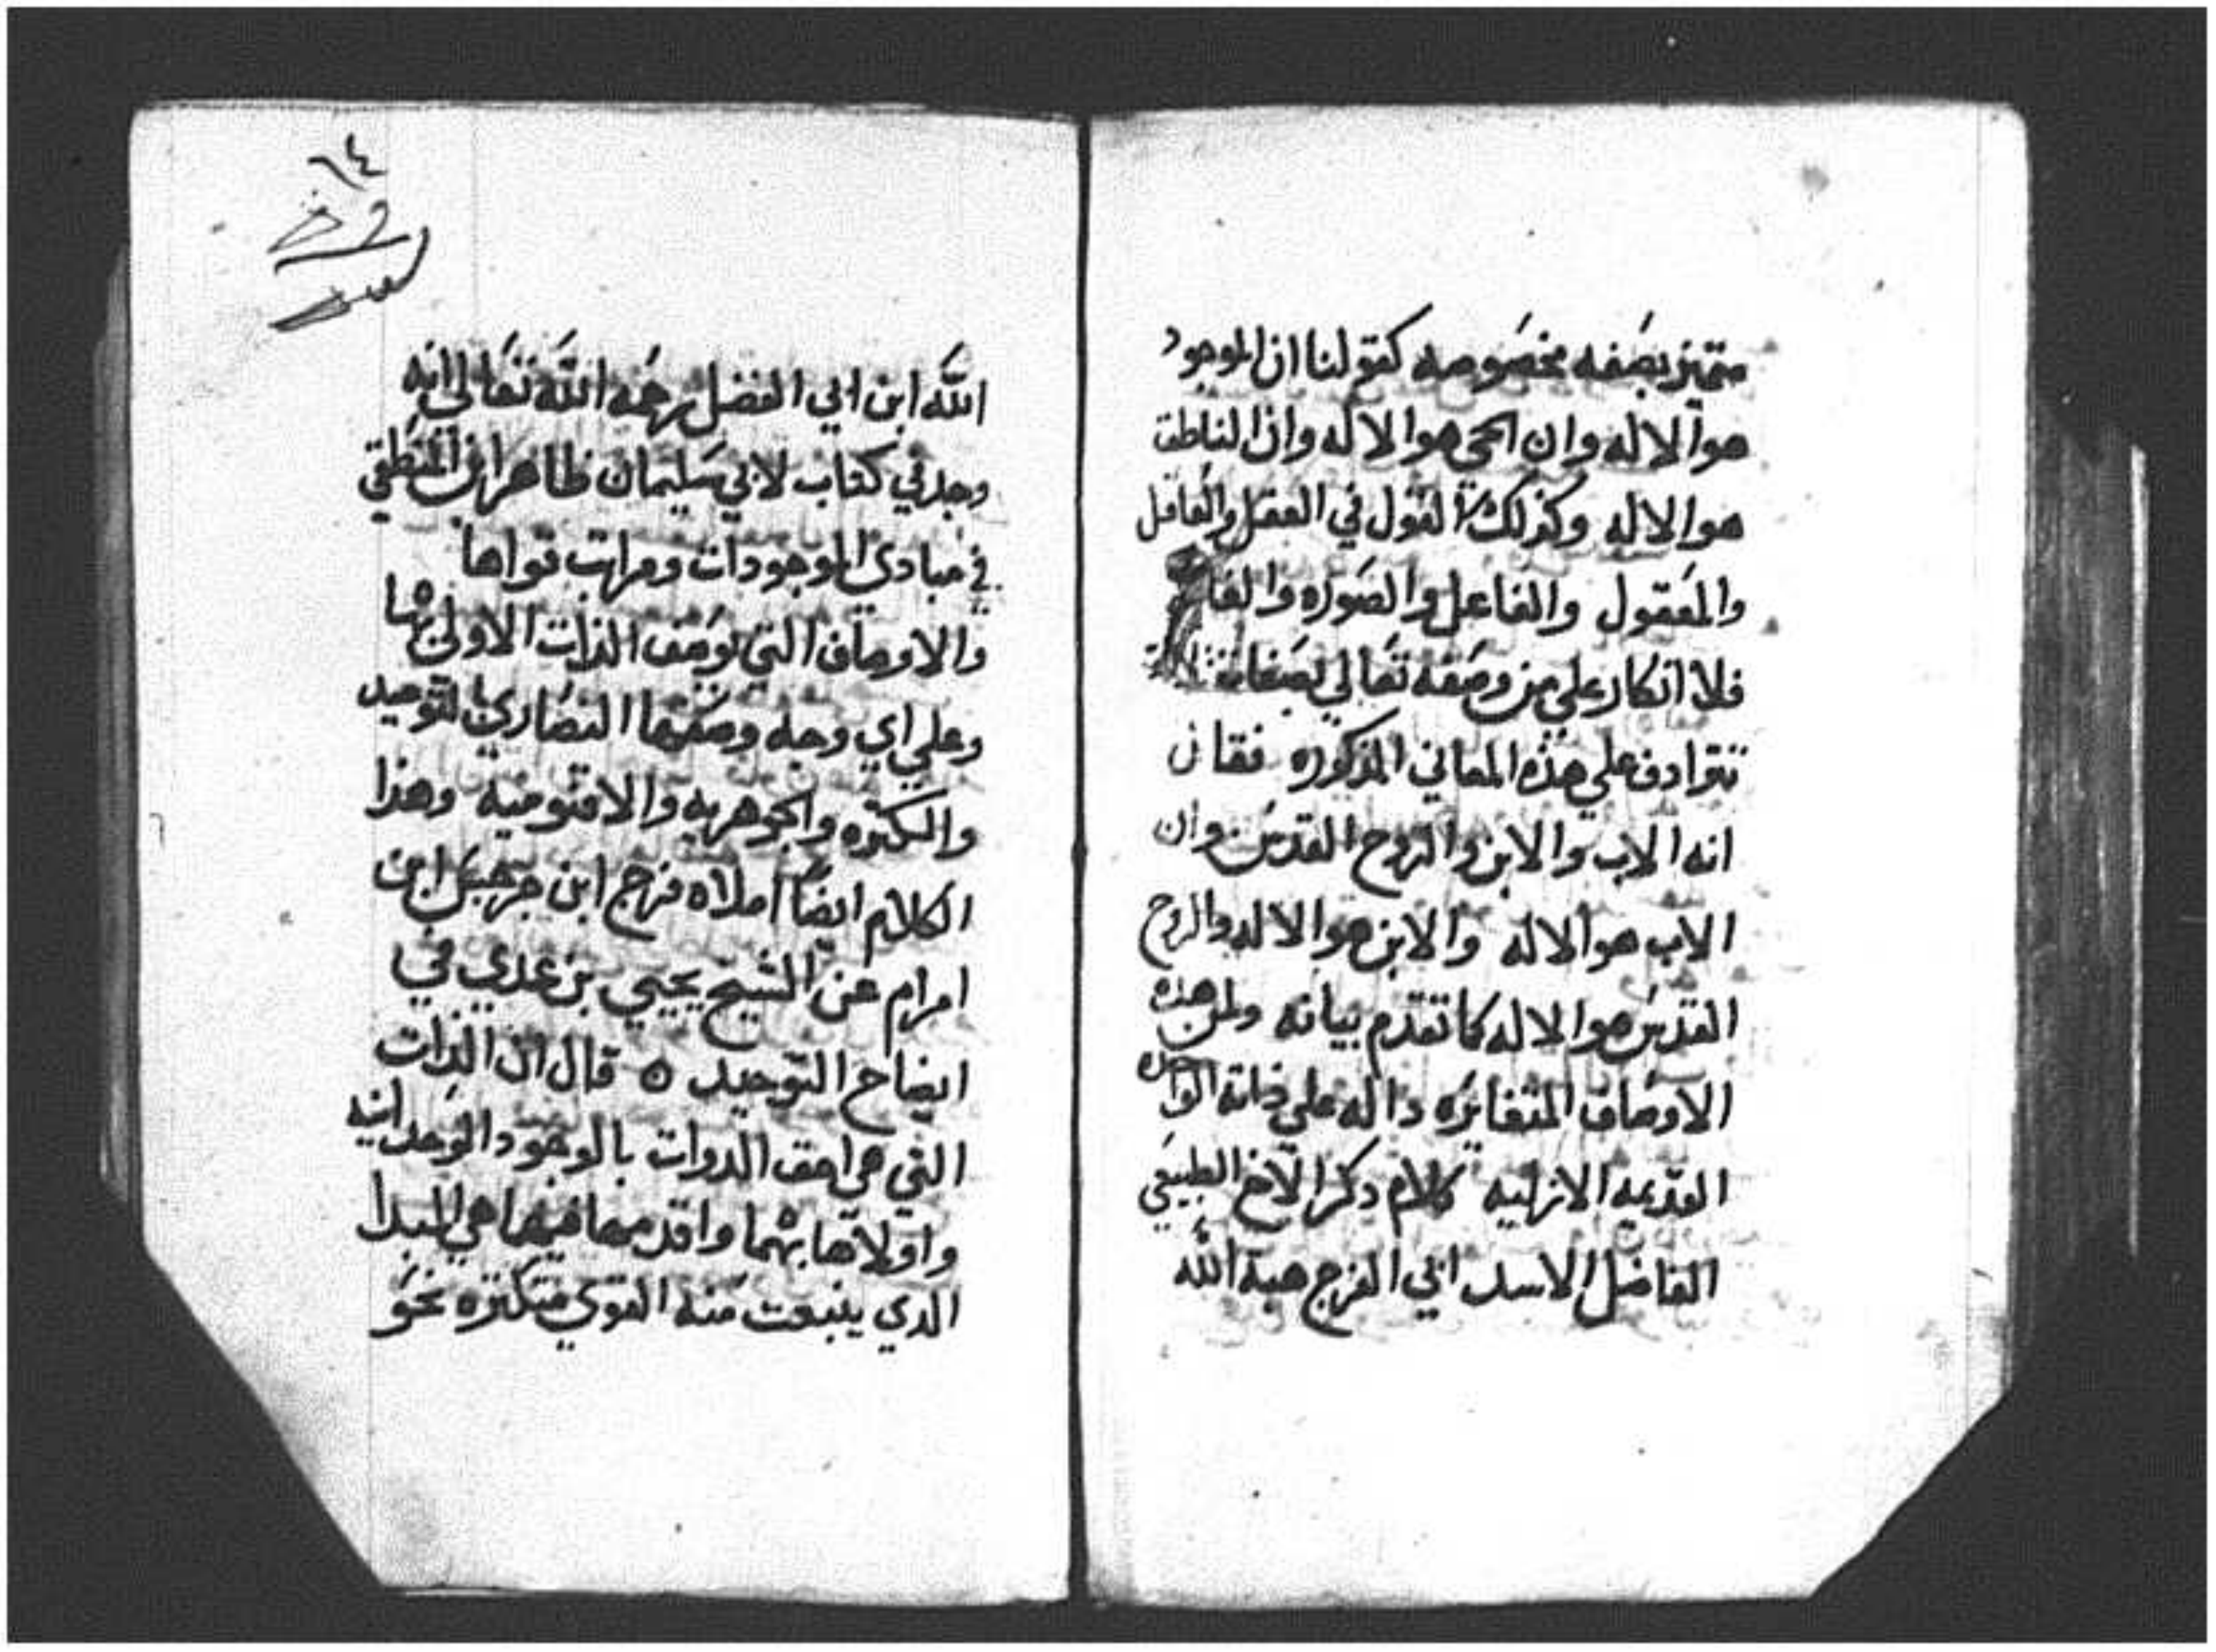 متميز بصفه مخصوصه كقولنا ان الموجود
هو الاله وان الحي هو الاله وان الناطق
هو الاله وكذلك القول في العقل والعاقل
والمعقول والفاعل والصوره والغا
فلا انكار علي من وصفه تعالي بصفات
تترادف علي هذه المعاني المذكوره فقال
انه الاب والابن والروح القدس وان
الاب هو الاله والابن هو الاله والروح
القدس هو الاله كما تقدم بيانه ولمن هذه
الاوصاف المتغايره داله علي ذاته الواحده
القديمه الازليه كلام ذكر الاخ الطبيعي
الفاضل الاسعد ابي الفرج هبة الله
٦٤
الله ابن ابي الفضل رحمه الله تعالي انه
وجد في كتاب لابي سليمان طاهر ابن المنطقي
في مبادي الموجودات ومراتب قواها
والاوصاف التي توصف الذات الاولي بها
وعلي اي وجه وصفها النصاري بالتوحيد
والكثره والجوهريه والاقنوميه وهذا
الكلام ايضا املاه فرج ابن جرجس ابن
امرام عن الشيخ يحيي بن عدي في
ايضاح التوحيد ه قال ان الذات
التي هي احق الدوات بالوجود الوحدانيه
واولاها بهما واقدمها فيهما هي المبدا
الدي ينبعت منه القوي متكثره نحو